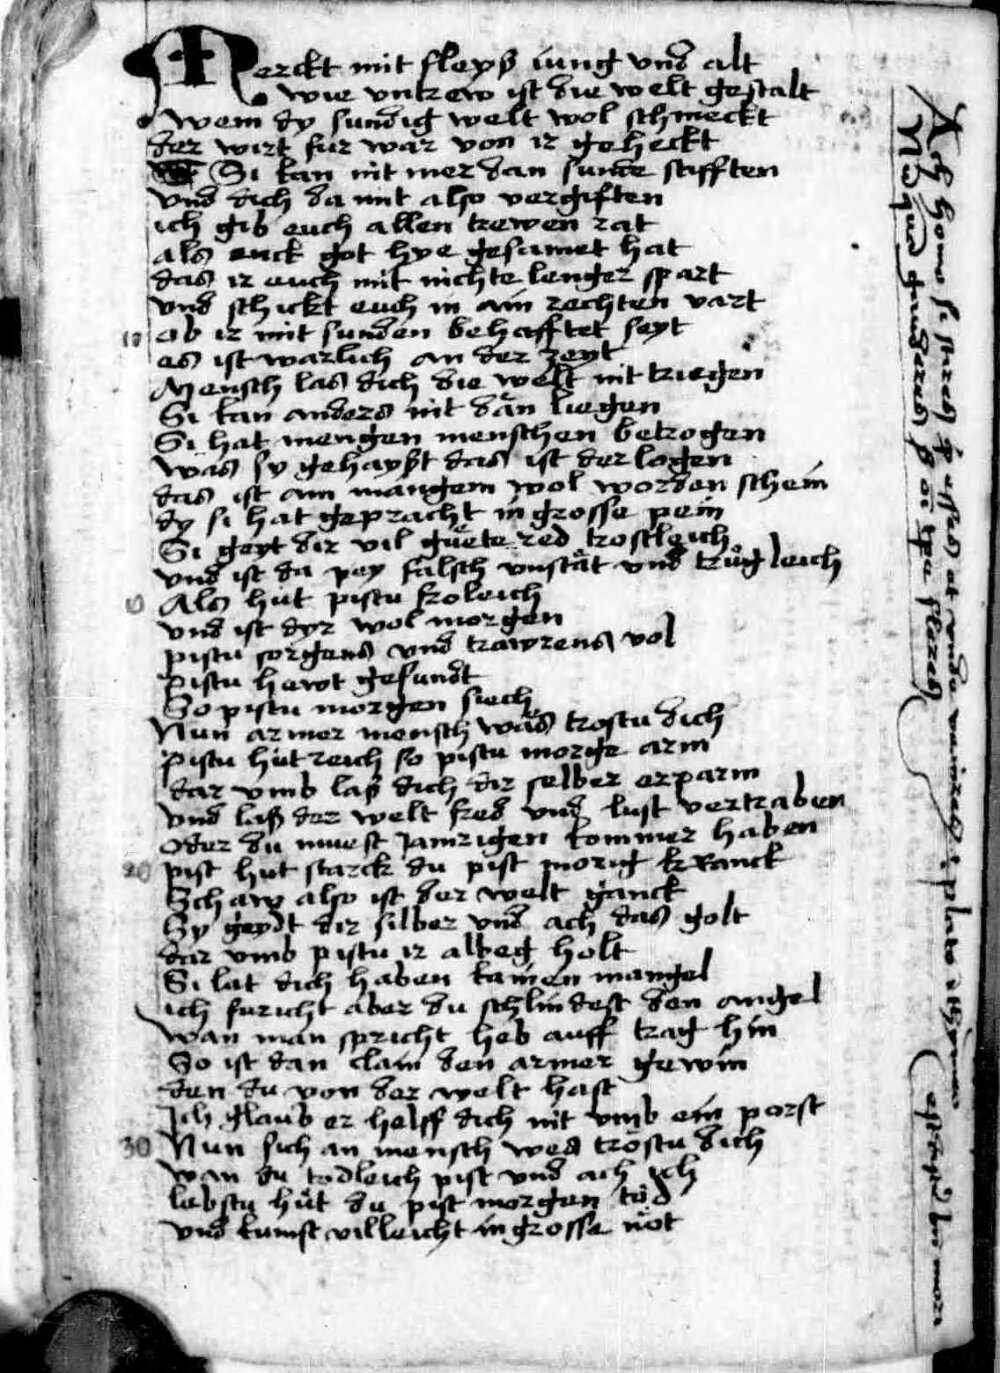 Merckt mit fleyß iung vnd alt
wie vntrew ist die welt gestalt
wem dy sundig welt wol schmeckt
der wirt fur war von ir geheckt
Si kan nit mer dan sunde stifften
vnd dich da mit also vergifften
ich gib euch allen trewen rat
als euck got hye gesamet hat
das ir euch mit nichte lenger spart
vnd schickt euch in ain rechten vart
10 ob ir mit sunden behafftet seyt
es ist warlich an der zeyt
Mensch las dich die welt nit triegen
Si kan anders nit dan liegen
Si hat mengen menschen betrogen
was sy gehayßt das ist derlogen
das ist ain mangem wol worden schein
dy si hat gepracht in grosse pein
Si geyt dir vil guete red trostleich
vnd ist da pey falsch vnstät vnd trüglleich
Als hut pistu froleich
vnd ist dyr wol morgen
pistu sorgens vnd trawrens vol
pistu hewt gesundt
So pistu morgen siech
Nun armer mensch was trostu dich
pistu hut reich so pistu morge arm
dar vmb laß dich dir selber erparm
vnd laß der welt fred vnd lust vertraben
oder du muest jamrigen kommer haben
20 pist hut starck du pist morig kranck
Schaw also ist der welt ganck
Sy geydt dir silber vnd ach das golt
dar vmb pistu ir alweg holt
Si lat dich haben kainen mangel
ich furicht aber du schlindest den angel
wan man spricht heb auff trag hin
So ist dan clain den armer gewin
den du von der welt hast
Ich glaub er helff dich nit vmb ein porst
30 Nun sich an mensch wes tröstu dich
wan du todleich pist vnd ach ich
lebstu hüt du pist morgen töd
vnd kumst villeicht in grosse nöt
Ach homo si